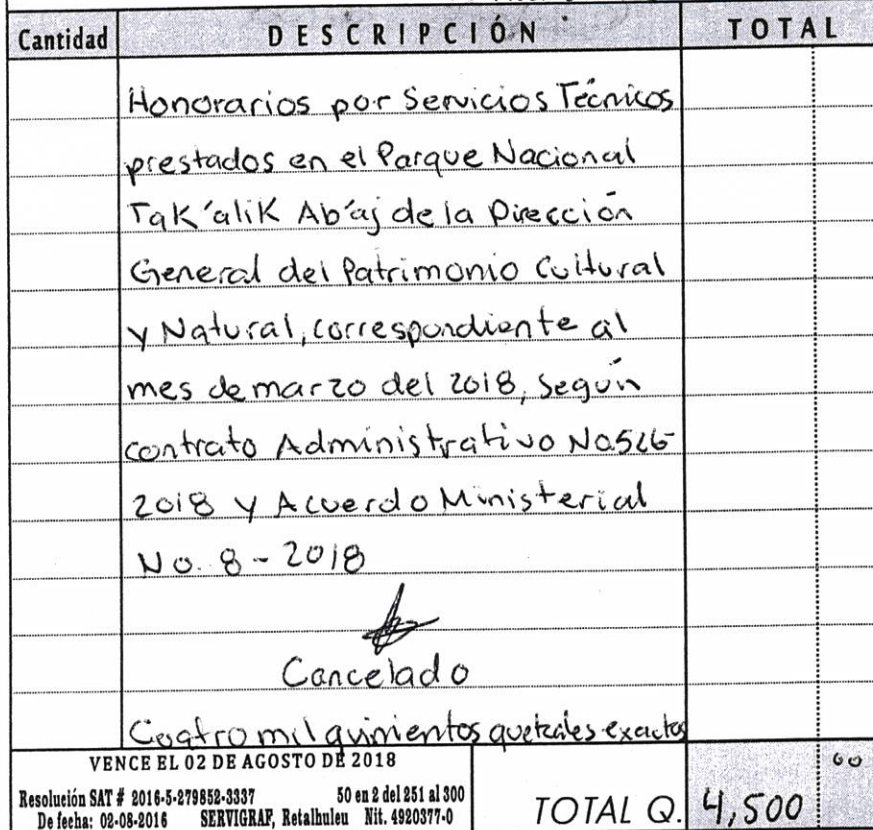 Cantidad DESCRIPCIÓN TOTAL
Honorarios por Servicios Técnicos
prestados en el Parque Nacional
Tak'alik Ab'aj de la Dirección
General del Patrimonio Cultural
y Natural, correspondiente al
mes de marzo del 2018, según
contrato Administrativo No.526-
2018 y Acuerdo Ministerial
No. 8-2018
Cancelado
Cuatro mil quinientos quetzales exactos
VENCE EL 02 DE AGOSTO DE 2018
Resolución SAT # 2016-5-279852-3337 50 en 2 del 251 al 300
De fecha: 02-08-2016 SERVIGRAF, Retalhuleu Nit. 4920377-0
TOTAL Q. 4,500 00